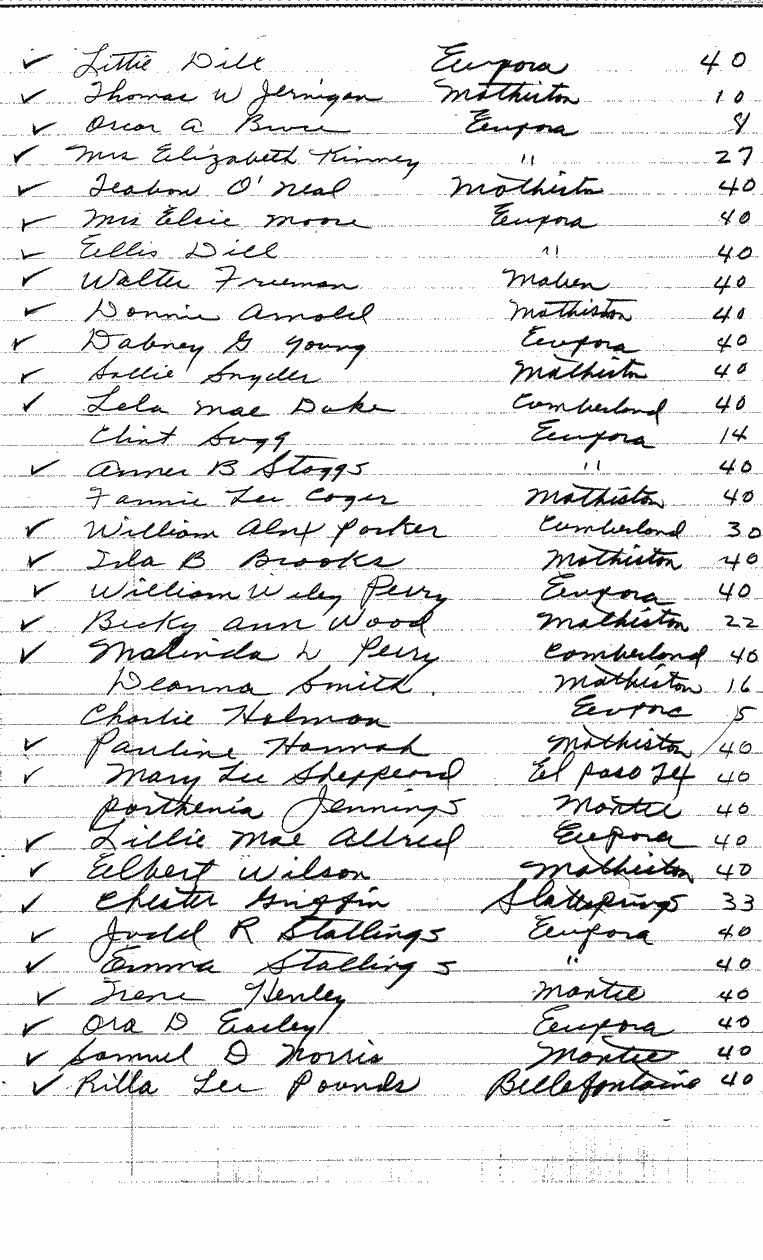 ✓ Littie Dill Eupora 40
✓ Thomas W Jernigan Mathiston 10
✓ Oscar A Bruce Eupora 8
✓ Mrs Elizabeth Kinney " 27
✓ O'Neal Mathiston 40
✓ Mrs Elsie Moore Eupora 40
✓ Ellis Dill " 40
✓ Walter Freeman Maben 40
✓ Donnie Arnold Mathiston 40
✓ Dabney G Young Eupora 40
✓ Sallie Snyder Mathiston 40
✓ Lela Mae Duke Cumberland 40
Clint Sugg Eupora 14
✓ Anner B Staggs " 40
Fannie Lee Coger Mathiston 40
✓ William Alex Parker Cumberland 30
✓ Ila B Brooks Mathiston 40
✓ William Wiley Perry Eupora 40
✓ Becky Ann Wood Mathiston 22
✓ Malinda W Perry Cumberland 40
Deanna Smith. Mathiston 16
Charlie Holman Eupora 5
✓ Pauline Hannah Mathiston 40
✓ Mary Lee Shepperd El Paso Tex 40
Porthenia Jennings Mantee 40
✓ Lillie Mae Allred Eupora 40
✓ Elbert Wilson Mathiston 40
✓ Chester Griffin Slatesprings 33
✓ Judd R Stallings Eupora 40
✓ Emma Stallings " 40
✓ Irene Henley Mantee 40
✓ Ora D Easley Eupora 40
✓ Samuel D Norris Mantee 40
✓ Rilla Lee Pounds Bellefontaine 40